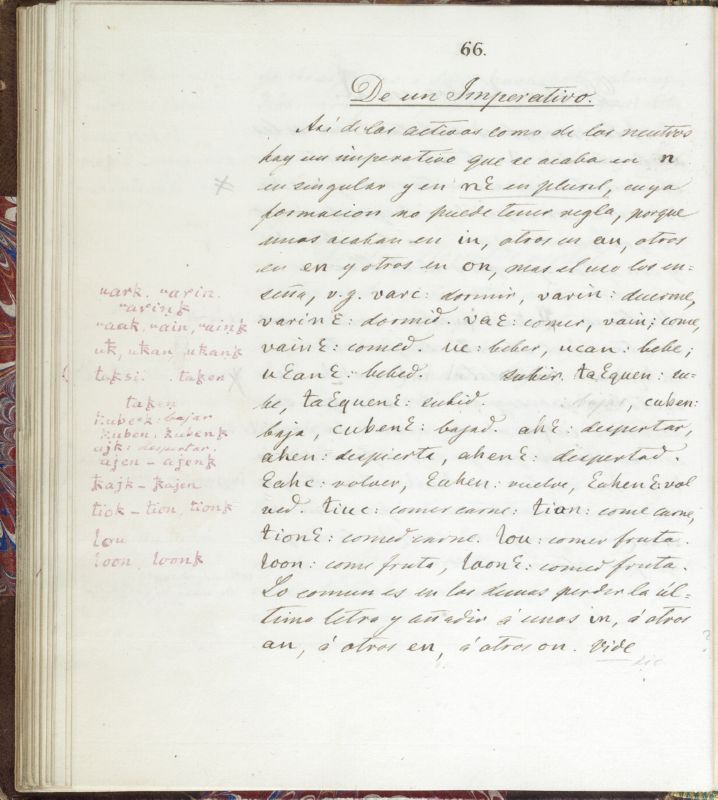 66.
De un Imperativo.
Asi de los activos como de los neutros
hay un imperativo que se acaba en n
en singular y en nƐ en plurel, cuya
formacion no puede tener regla, porque
unos acaban en in, otros en an, otros
en en y otros en on, mas el uso los en=
seña, v.g. varc: dormir, varin: duerme,
varinƐ: dormid. vaƐ: comer, vain: come,
vainƐ: comed. uc: beber, ucan: bebe;
uƐanƐ: bebed. subir. taƐquen: su-
be, taƐquenƐ: subid. , cuben:
baja, cubenƐ: bajad. ahƐ: despertar,
ahen: despierta, ahenƐ: despertad.
Ɛahc: volver, Ɛahen: vuelve, ƐahenƐ: vol
ved. tiuc: comer carne: tian: come carne,
tionƐ: comed carne. lou: comer fruta.
loon: come fruta, loonƐ: comed fruta.
Lo comun es en las demas perder la úl=
tima letra y añadir á unos in, á otros
an, á otros en, á otros on. Vide
sic ?
vark. varin.
varinꝁ
vaak, vain, vainꝁ
uꝁ, uꝁan, uꝁanꝁ
taksi. taken
taken
kubeek: bajar
kuben, kubenꝁ
ajk: despertar.
ajen – ajenꝁ
ꝁajk – ꝁajen
tiok – tion, tionꝁ
lou
loon, loonꝁ